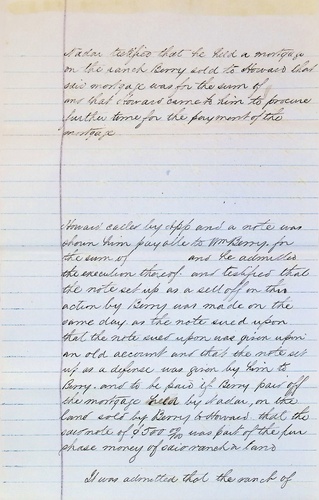 Nadar testified that he held a mortgage
on the ranch Berry sold to Howard that
said mortgage was for the sum of
and that Howard came to him to procure
further time for the payment of the
mortgage
Howard called by Opp and a note was
shown him payable to Wm Berry, for
the sum of and he admitted
the execution thereof and testified that
the note set up as a sell off on this
action by Berry was made on the
same day as the note sued upon
that the note sued upon was given upon
an old account and that the note set
up as a defense was given by him to
Berry. and to be paid if Berry paid off
the mortgage held by Nadar, on the
land sold by Berry to Howard that the
said note of $500 was part of the pur
phase money of said ranch & land
It was admitted that the ranch of